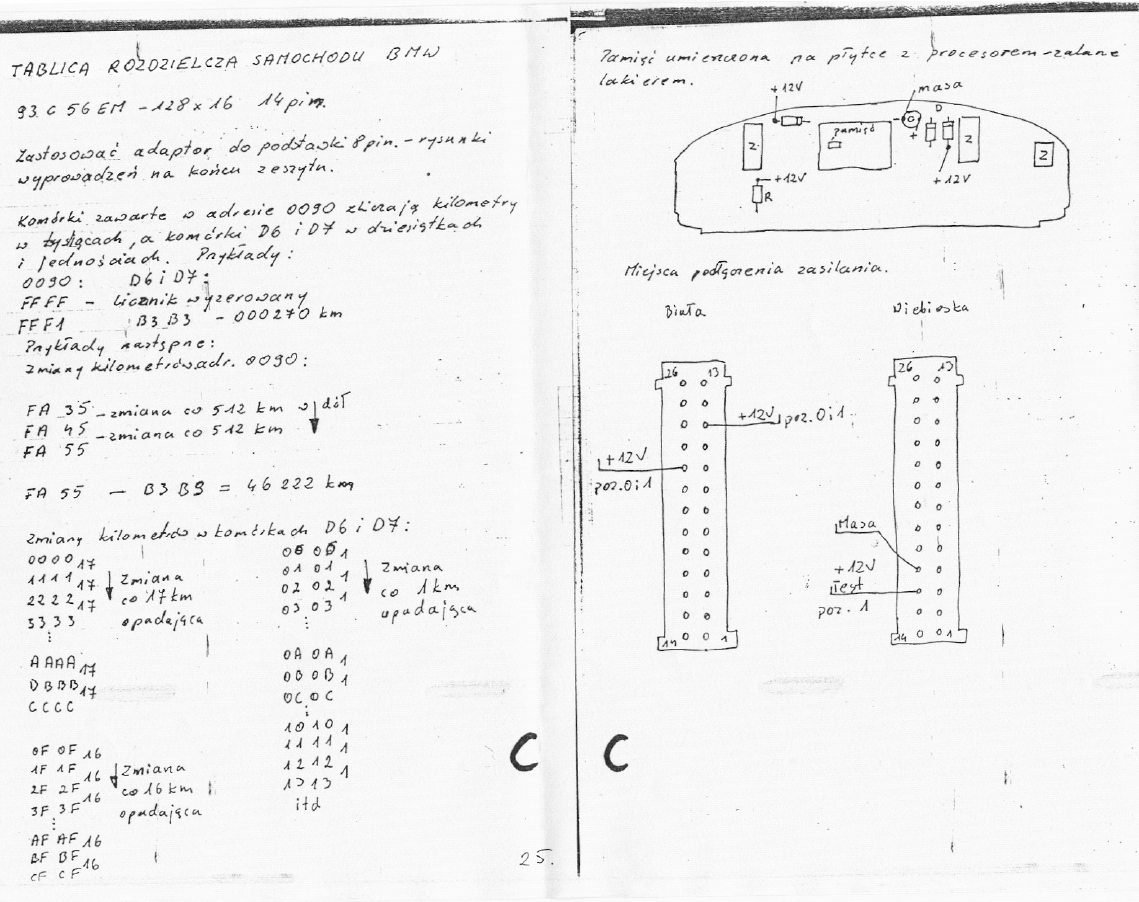 TABLICA ROZDZIELCZA SAMOCHODU BMW
93 C 56 EM - 128 x 16 14 pin.
Zastosować adaptor do podstawki 8 pin. - rysunki
wyprowadzeń na końcu zeszytu.
Komórki zawarte w adresie 0090 zliczają kilometry
w tysiącach, a komórki D6 i D7 w dziesiątkach
i jednościach. Przykłady:
0090: D6 i D7:
FFFF - licznik wyzerowany
FFF1 B3 B3 - 000270 km
Przykłady następne:
Zmiany kilometrów adr. 0090:
FA 35 - zmiana co 512 km w dół
FA 45 - zmiana co 512 km
FA 55
FA 55 - B3 B3 = 46222 km
Zmiany kilometrów w komórkach D6 i D7:
0000 17
1111 17 Zmiana
2222 17 co 17 km
3333 opadająca
AAAA 17
BBBB 17
CCCC
0F 0F 16
1F 1F 16 Zmiana
2F 2F 16 co 16 km
3F 3F opadająca
AF AF 16
BF BF 16
CF CF
00 00 1
01 01 1 Zmiana
02 02 1 co 1 km
03 03 opadająca
0A 0A 1
0B 0B 1
0C 0C
10 10 1
11 11 1
12 12 1
13 13
itd
C
25.
Pamięć umieszczona na płytce z procesorem - zalane
lakierem.
+12V
masa
D
pamięć
+
Z
Z
Z
+12V
+12V
R
Miejsca podłączenia zasilania.
Biała
Niebieska
26 13
26 13
+12V poz. 0 i 1
+12V
poz. 0 i 1
Masa
+12V
Test
poz. 1
14 1
14 1
C